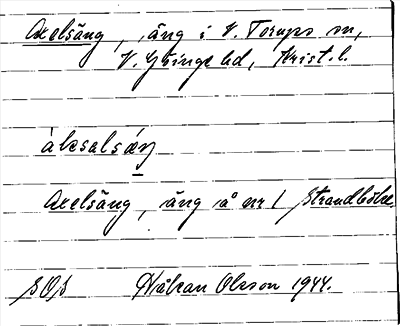 Axelsäng, äng i V. Torups sn,
V. Göinge hd, Krist. l.
àksalsǽŋ
Axelsäng, äng å nr 1 Strandböke
SOS Håkan Olsson 1944.